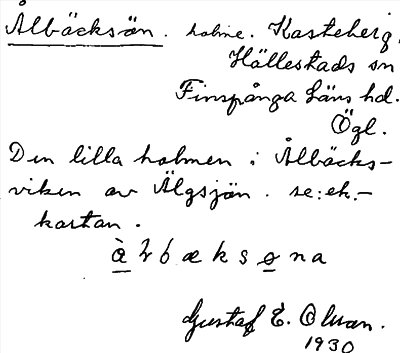 Ålbäcksön. holme. Kasteberg,
Hällestads sn
Finspånga Läns hd.
Ögl.
Den lilla holmen i Ålbäcks-
viken av Älgsjön. se: ek.-
kartan.
Gustaf E. Olson.
1930